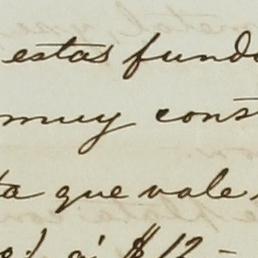 estas fund
muy cons
ta que vale
á $12-